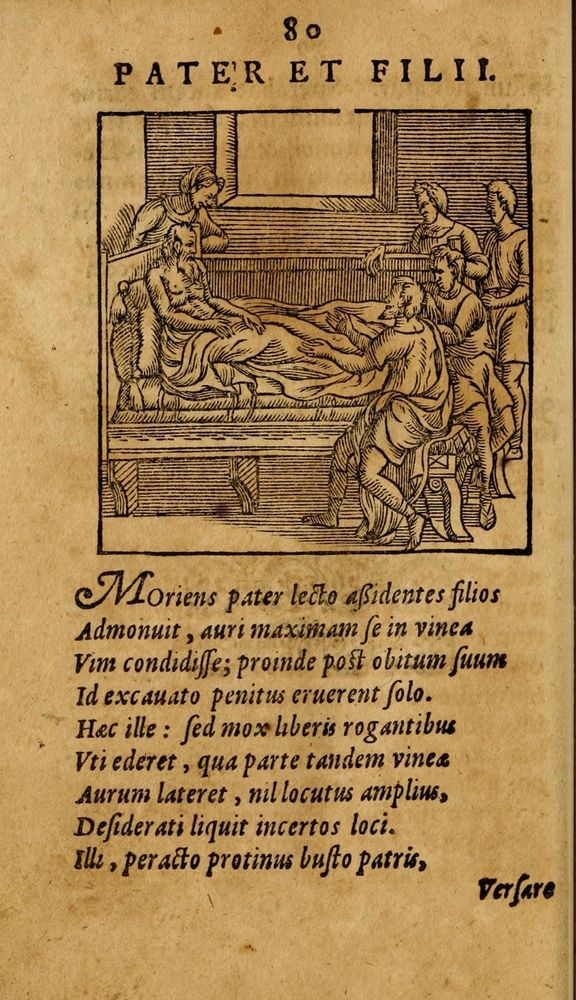 80
PATER ET FILII.
MOriens pater lecto aßidentes filios
Admonuit, auri maximam se in vinea
Vim condidisse; proinde post obitum suum
Id excauato penitus eruerent solo.
Hæc ille: sed mox liberis rogantibus
Vti ederet, qua parte tandem vineæ
Aurum lateret, nil locutus amplius,
Desiderati liquit incertos loci.
Illi, peracto protinus busto patris,
Versare